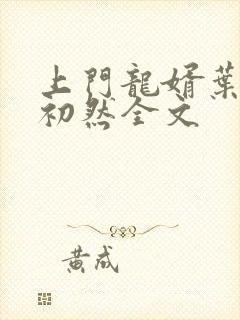 上門龍婿葉
初然全文
黄成